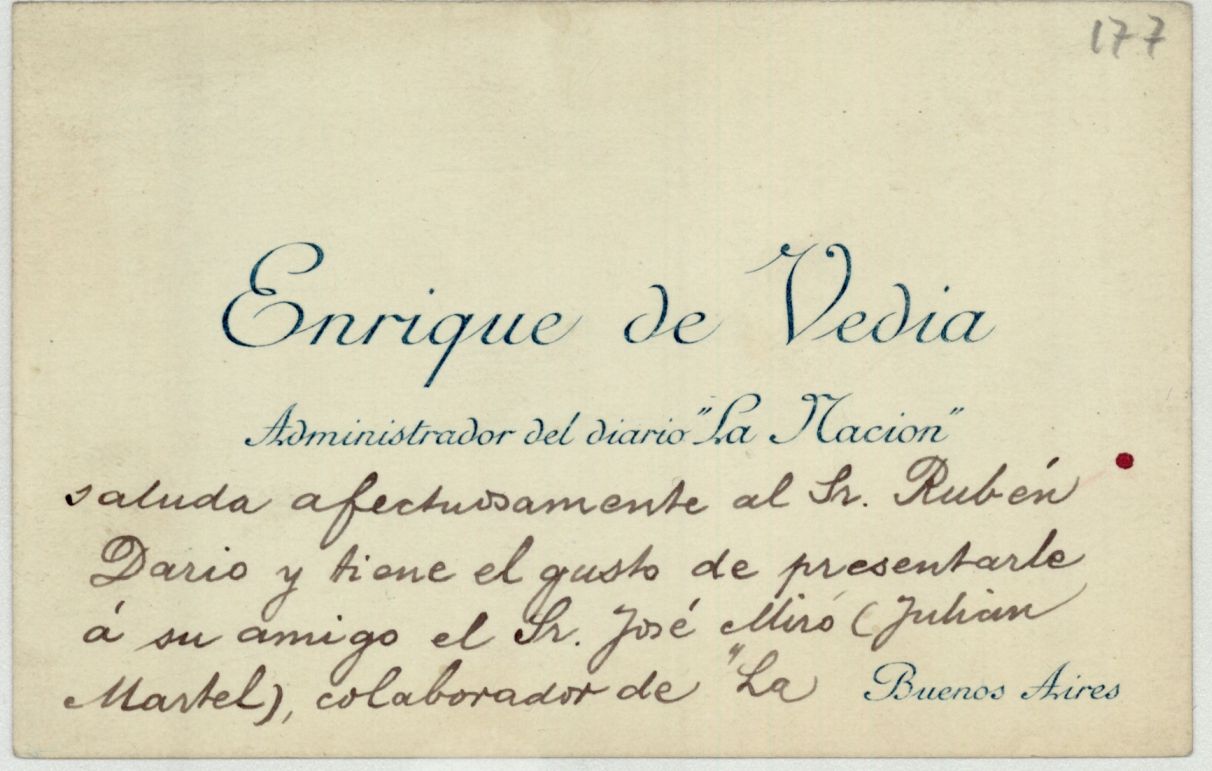 177
Enrique de Vedia
Administrador del diario "La Nacion"
saluda afectuosamente al Sr. Rubén
Dario y tiene el gusto de presentarle
á su amigo el Sr. José Miró (Julian
Martel), colaborador de "La
Buenos Aires